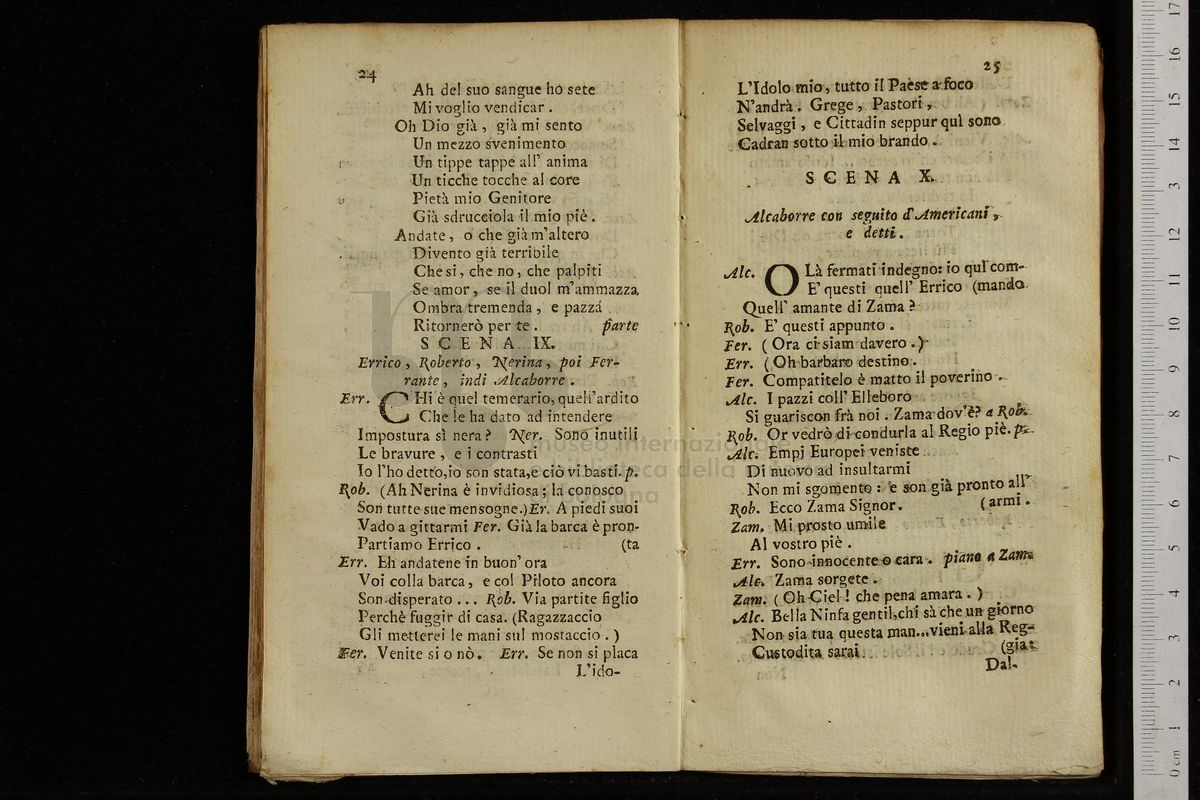 24
Ah del suo sangue ho sete
Mi voglio vendicar .
Oh Dio già , già mi sento
Un mezzo svenimento
Un tippe tappe all' anima
Un ticche tocche al core
Pietà mio Genitore
Già sdrucciola il mio piè .
Andate , o che già m'altero
Divento già terribile
Che si , che no , che palpiti
Se amor , se il duol m'ammazza,
Ombra tremenda , e pazza
Ritornerò per te . parte
SCENA IX.
Errico , Roberto , Nerina , poi Fer-
rante , indi Alcaborre .
Err. CHi è quel temerario, quell'ardito
Che le ha dato ad intendere
Impostura sì nera ? Ner. Sono inutili
Le bravure , e i contrasti
Io l'ho detto,io son stata,e ciò vi basti. p.
Rob. (Ah Nerina è invidiosa ; la conosco
Son tutte sue mensogne.) Er. A piedi suoi
Vado a gittarmi Fer. Già la barca è pron-
Partiamo Errico . (ta
Err. Eh andatene in buon' ora
Voi colla barca , e col Piloto ancora
Son disperato ... Rob. Via partite figlio
Perchè fuggir di casa. (Ragazzaccio
Gli metterei le mani sul mostaccio . )
Fer. Venite si o nò . Err. Se non si placa
L'ido-
25
L'Idolo mio , tutto il Paese a foco
N'andrà . Grege , Pastori ,
Selvaggi , e Cittadin seppur quì sono
Cadran sotto il mio brando .
SCENA X.
Alcaborre con seguito d'Americani ,
e detti .
Alc. OLà fermati indegno: io quì com-
E' questi quell' Errico (mando
Quell' amante di Zama ?
Rob. E' questi appunto .
Fer. ( Ora ci siam davero . )
Err. ( Oh barbaro destino .
Fer. Compatitelo è matto il poverino .
Alc. I pazzi coll' Elleboro
Si guariscon frà noi . Zama dov'è? a Rob.
Rob. Or vedrò di condurla al Regio piè. p.
Alc. Empj Europei veniste
Di nuovo ad insultarmi
Non mi sgomento : e son già pronto all'
Rob. Ecco Zama Signor. (armi .
Zam. Mi prosto umile
Al vostro piè .
Err. Sono innocente o cara . piano a Zama
Alc. Zama sorgete .
Zam. ( Oh Ciel ! che pena amara . )
Alc. Bella Ninfa gentil,chi sà che un giorno
Non sia tua questa man...vieni alla Reg-
Custodita sarai (gia
Dal-